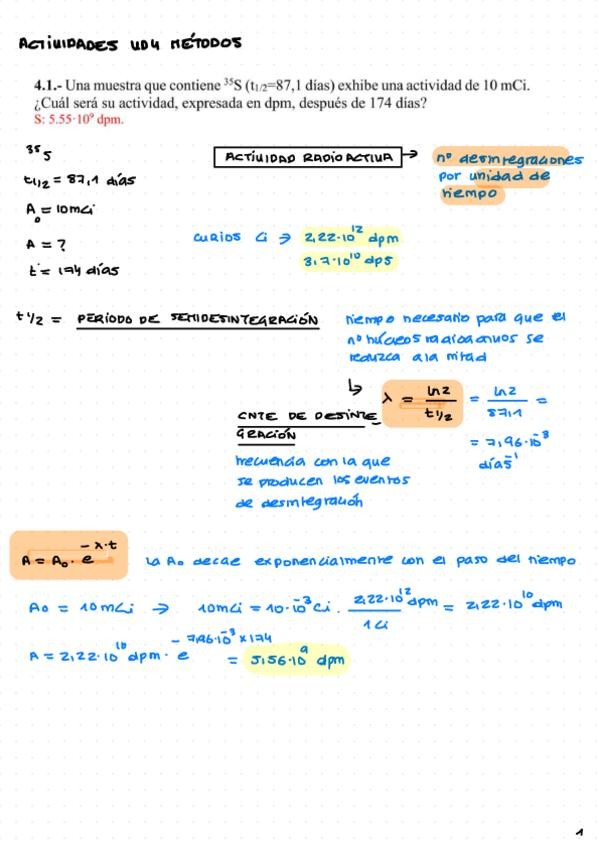 ACTIVIDADES UD4 MÉTODOS
4.1.- Una muestra que contiene ³⁵S (t1/2=87,1 días) exhibe una actividad de 10 mCi.
¿Cuál será su actividad, expresada en dpm, después de 174 días?
S: 5.55·10⁹ dpm.
³⁵S
t1/2 = 87,1 días
A₀ = 10mCi
A = ?
t = 174 días
ACTIVIDAD RADIOACTIVA →
nº desintegraciones
por unidad de
tiempo
curios Ci → 2,22·10¹² dpm
3,7·10¹⁰ dps
t1/2 = PERÍODO DE SEMIDESINTEGRACIÓN
tiempo necesario para que el
nº núcleos radioactivos se
reduzca a la mitad
↳ λ = ln2 / t1/2 = ln2 / 87,1 =
= 7,96·10⁻³
días⁻¹
CNTE DE DESINTE
GRACIÓN
frecuencia con la que
se producen los eventos
de desintegración
A = A₀ · e^(-λ·t)
la A₀ decae exponencialmente con el paso del tiempo
A₀ = 10mCi → 10mCi = 10·10⁻³ Ci · 2,22·10¹² dpm / 1Ci = 2,22·10¹⁰ dpm
A = 2,22·10¹⁰ dpm · e^(-7,96·10⁻³ x 174) = 5,56·10⁹ dpm
1